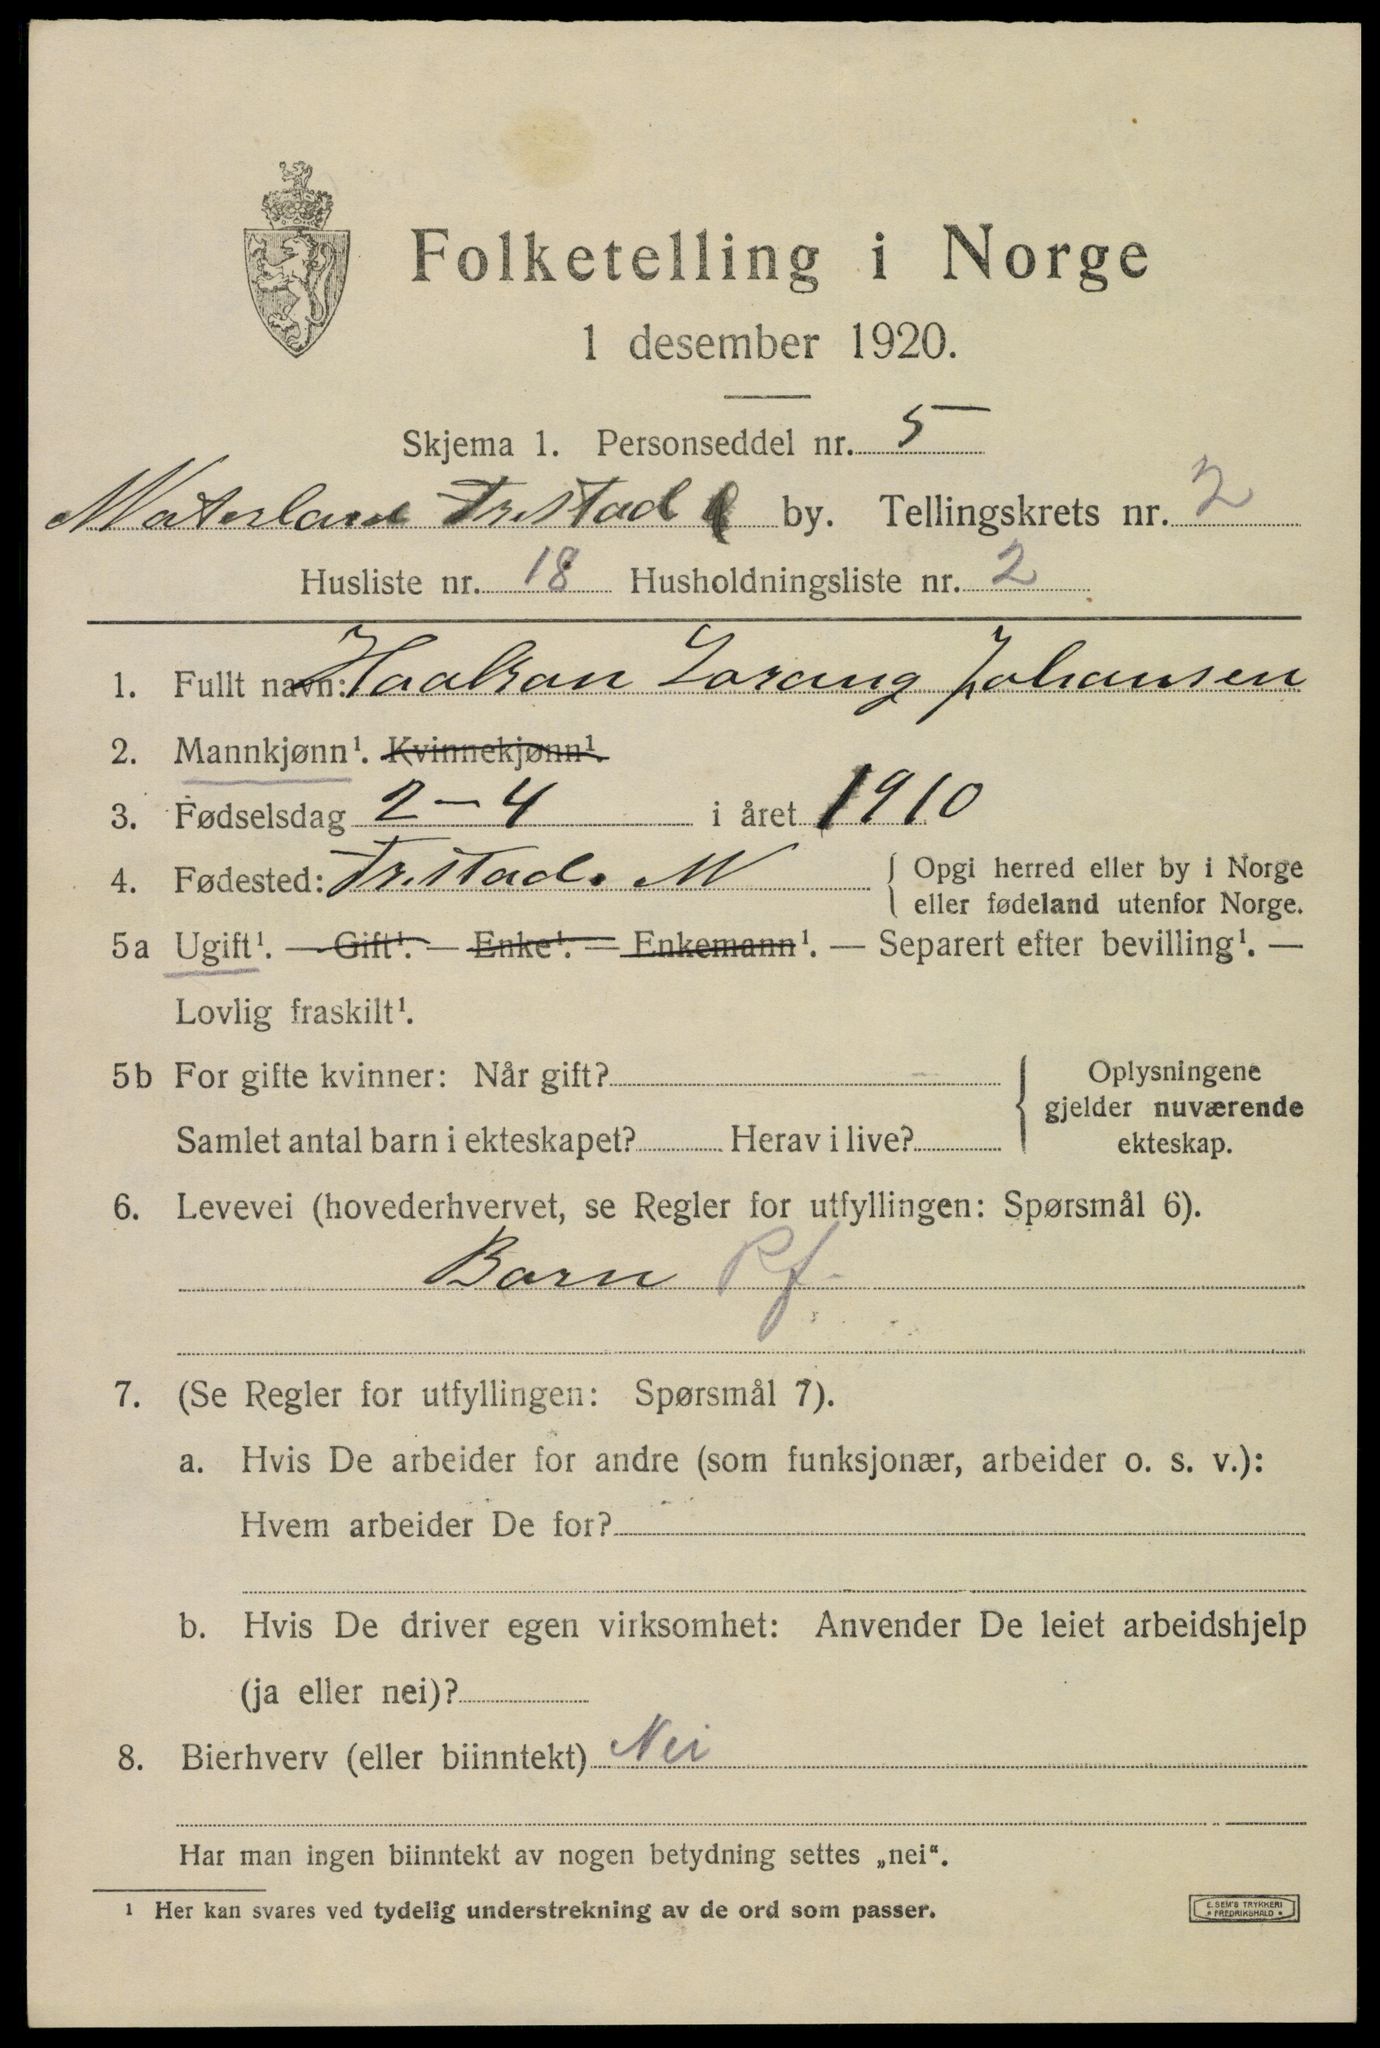 Folketelling i Norge
1 desember 1920.
Skjema 1. Personseddel nr. 5
Materland Fr.stad by. Tellingskrets nr. 2
Husliste nr. 18 Husholdningsliste nr. 2
1. Fullt navn: Haakon Lorang Johansen
2. Mannkjønn¹. Kvinnekjønn¹.
3. Fødselsdag 2-4 i året 1910
4. Fødested: Fr.stad. M { Opgi herred eller by i Norge
eller fødeland utenfor Norge.
5a Ugift¹. — Gift¹. — Enke¹. — Enkemann¹. — Separert efter bevilling¹. —
Lovlig fraskilt¹.
5b For gifte kvinner: Når gift?
Samlet antal barn i ekteskapet? Herav i live?
{ Oplysningene
gjelder nuværende
ekteskap.
6. Levevei (hovederhvervet, se Regler for utfyllingen: Spørsmål 6).
Barn Pf.
7. (Se Regler for utfyllingen: Spørsmål 7).
a. Hvis De arbeider for andre (som funksjonær, arbeider o. s. v.):
Hvem arbeider De for?
b. Hvis De driver egen virksomhet: Anvender De leiet arbeidshjelp
(ja eller nei)?
8. Bierhverv (eller biinntekt) Nei
Har man ingen biinntekt av nogen betydning settes „nei“.
¹ Her kan svares ved tydelig understrekning av de ord som passer.
E. SEM'S TRYKKERI
* FREDRIKSHALD *